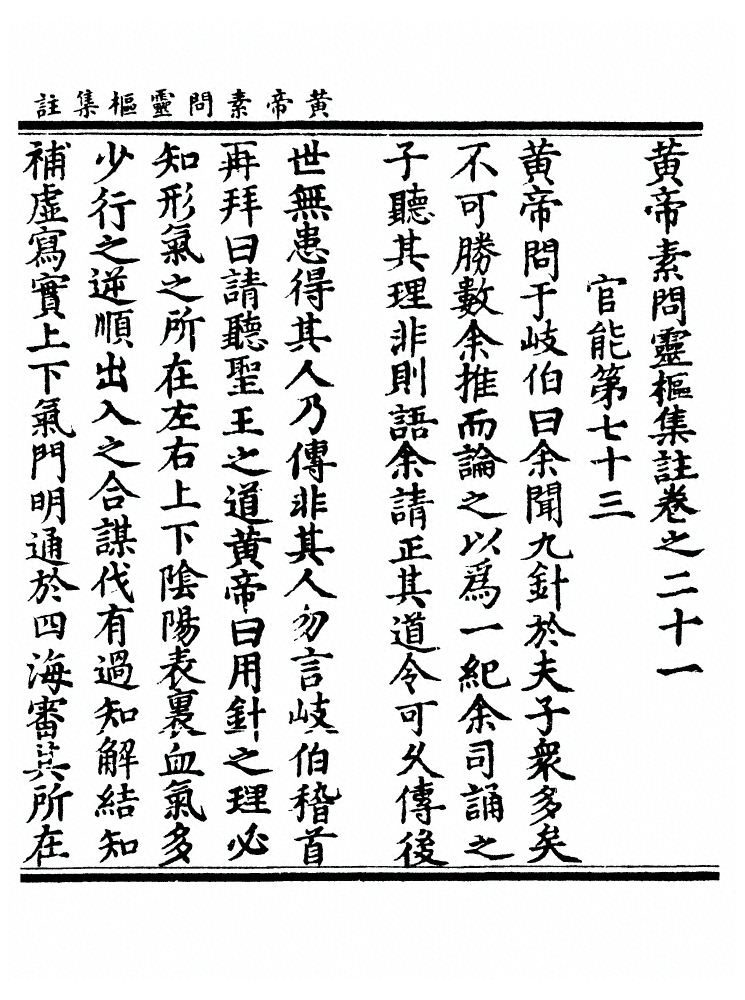 黃帝素問靈樞集註
黃帝素問靈樞集註卷之二十一
官能第七十三
黃帝問于岐伯曰余聞九針於夫子衆多矣
不可勝數余推而論之以爲一紀余司誦之
子聽其理非則語余請正其道令可久傳後
世無患得其人乃傳非其人勿言岐伯稽首
再拜曰請聽聖王之道黃帝曰用針之理必
知形氣之所在左右上下陰陽表裏血氣多
少行之逆順出入之合謀伐有過知解結知
補虛寫實上下氣門明通於四海審其所在